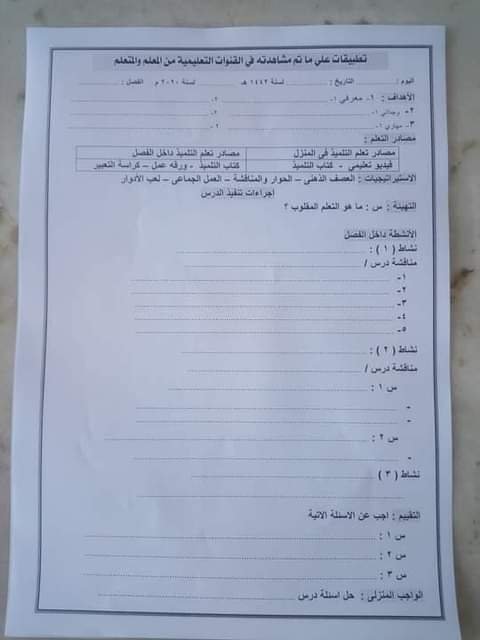 تطبيقات على ما تم مشاهدته في القنوات التعليمية من المعلم والمتعلم
اليوم : ............ التاريخ : ............ لسنة ١٤٤٢ هـ ............ لسنة ٢٠٢٠ م الفصل : ......
الأهداف : ١- معرفي ١- ............ ٢- ............
٢- وجداني ١- ............ ٢- ............
٣- مهاري ١- ............ ٢- ............
مصادر التعلم :
مصادر تعلم التلميذ في المنزل مصادر تعلم التلميذ داخل الفصل
فيديو تعليمي - كتاب التلميذ كتاب التلميذ - ورقه عمل – كراسة التعبير
الاستراتيجيات : العصف الذهنى – الحوار والمناقشة – العمل الجماعى – لعب الأدوار
إجراءات تنفيذ الدرس
التهيئة : س : ما هو التعلم المقلوب ؟
الأنشطة داخل الفصل
نشاط ( ١ ) : ............
مناقشة درس / ............
١- ............
٢- ............
٣- ............
٤- ............
٥- ............
نشاط ( ٢ ) : ............
مناقشة درس / ............
س ١ : ............
- ............
- ............
س ٢ : ............
- ............
نشاط ( ٣ ) ............
التقييم : اجب عن الاسئلة الاتية
س ١ : ............
س ٢ : ............
س ٣ : ............
الواجب المنزلى : حل اسئلة درس ............